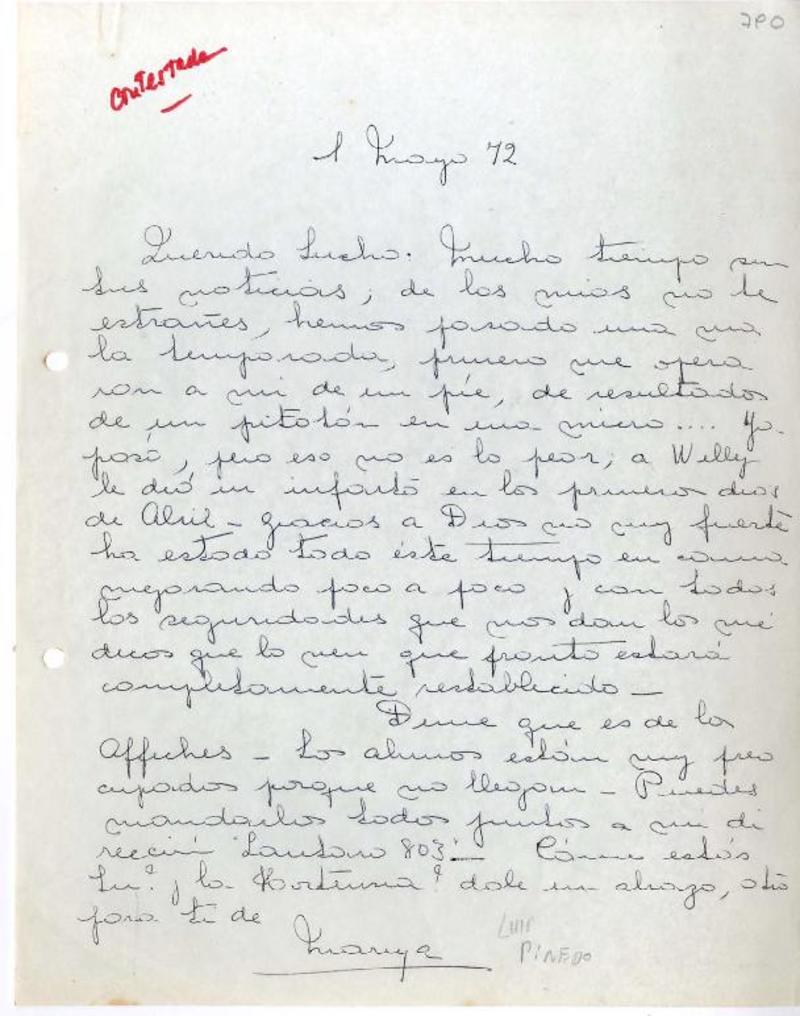 790
Contestada
1 Mayo 72
Querido Lucho: Mucho tiempo sin
tus noticias; de los mios no te
estrañes, hemos pasado una ma
la temporada, primero me opera
ron a mi de un píe, de resultados
de un pitotón en una micro.... Ya
pasó, pero eso no es lo peor; a Willy
le dió un infarto en los primeros dias
de Abril - gracias a Dios no muy fuerte
ha estado todo éste tiempo en cama
mejorando poco a poco y con todas
las seguridades que nos dan los mé
dicos que lo ven que pronto estará
completamente restablecido -
Dime que es de los
Affiches - Los alumnos están muy preo
cupados porque no llegan - Puedes
mandarlos todos juntos a mi di
rección "Lautaro 803" - Cómo estás
tu? y la Hortensia? dale un abrazo, otro
para tí de
Marya
LUIS
PINEDO